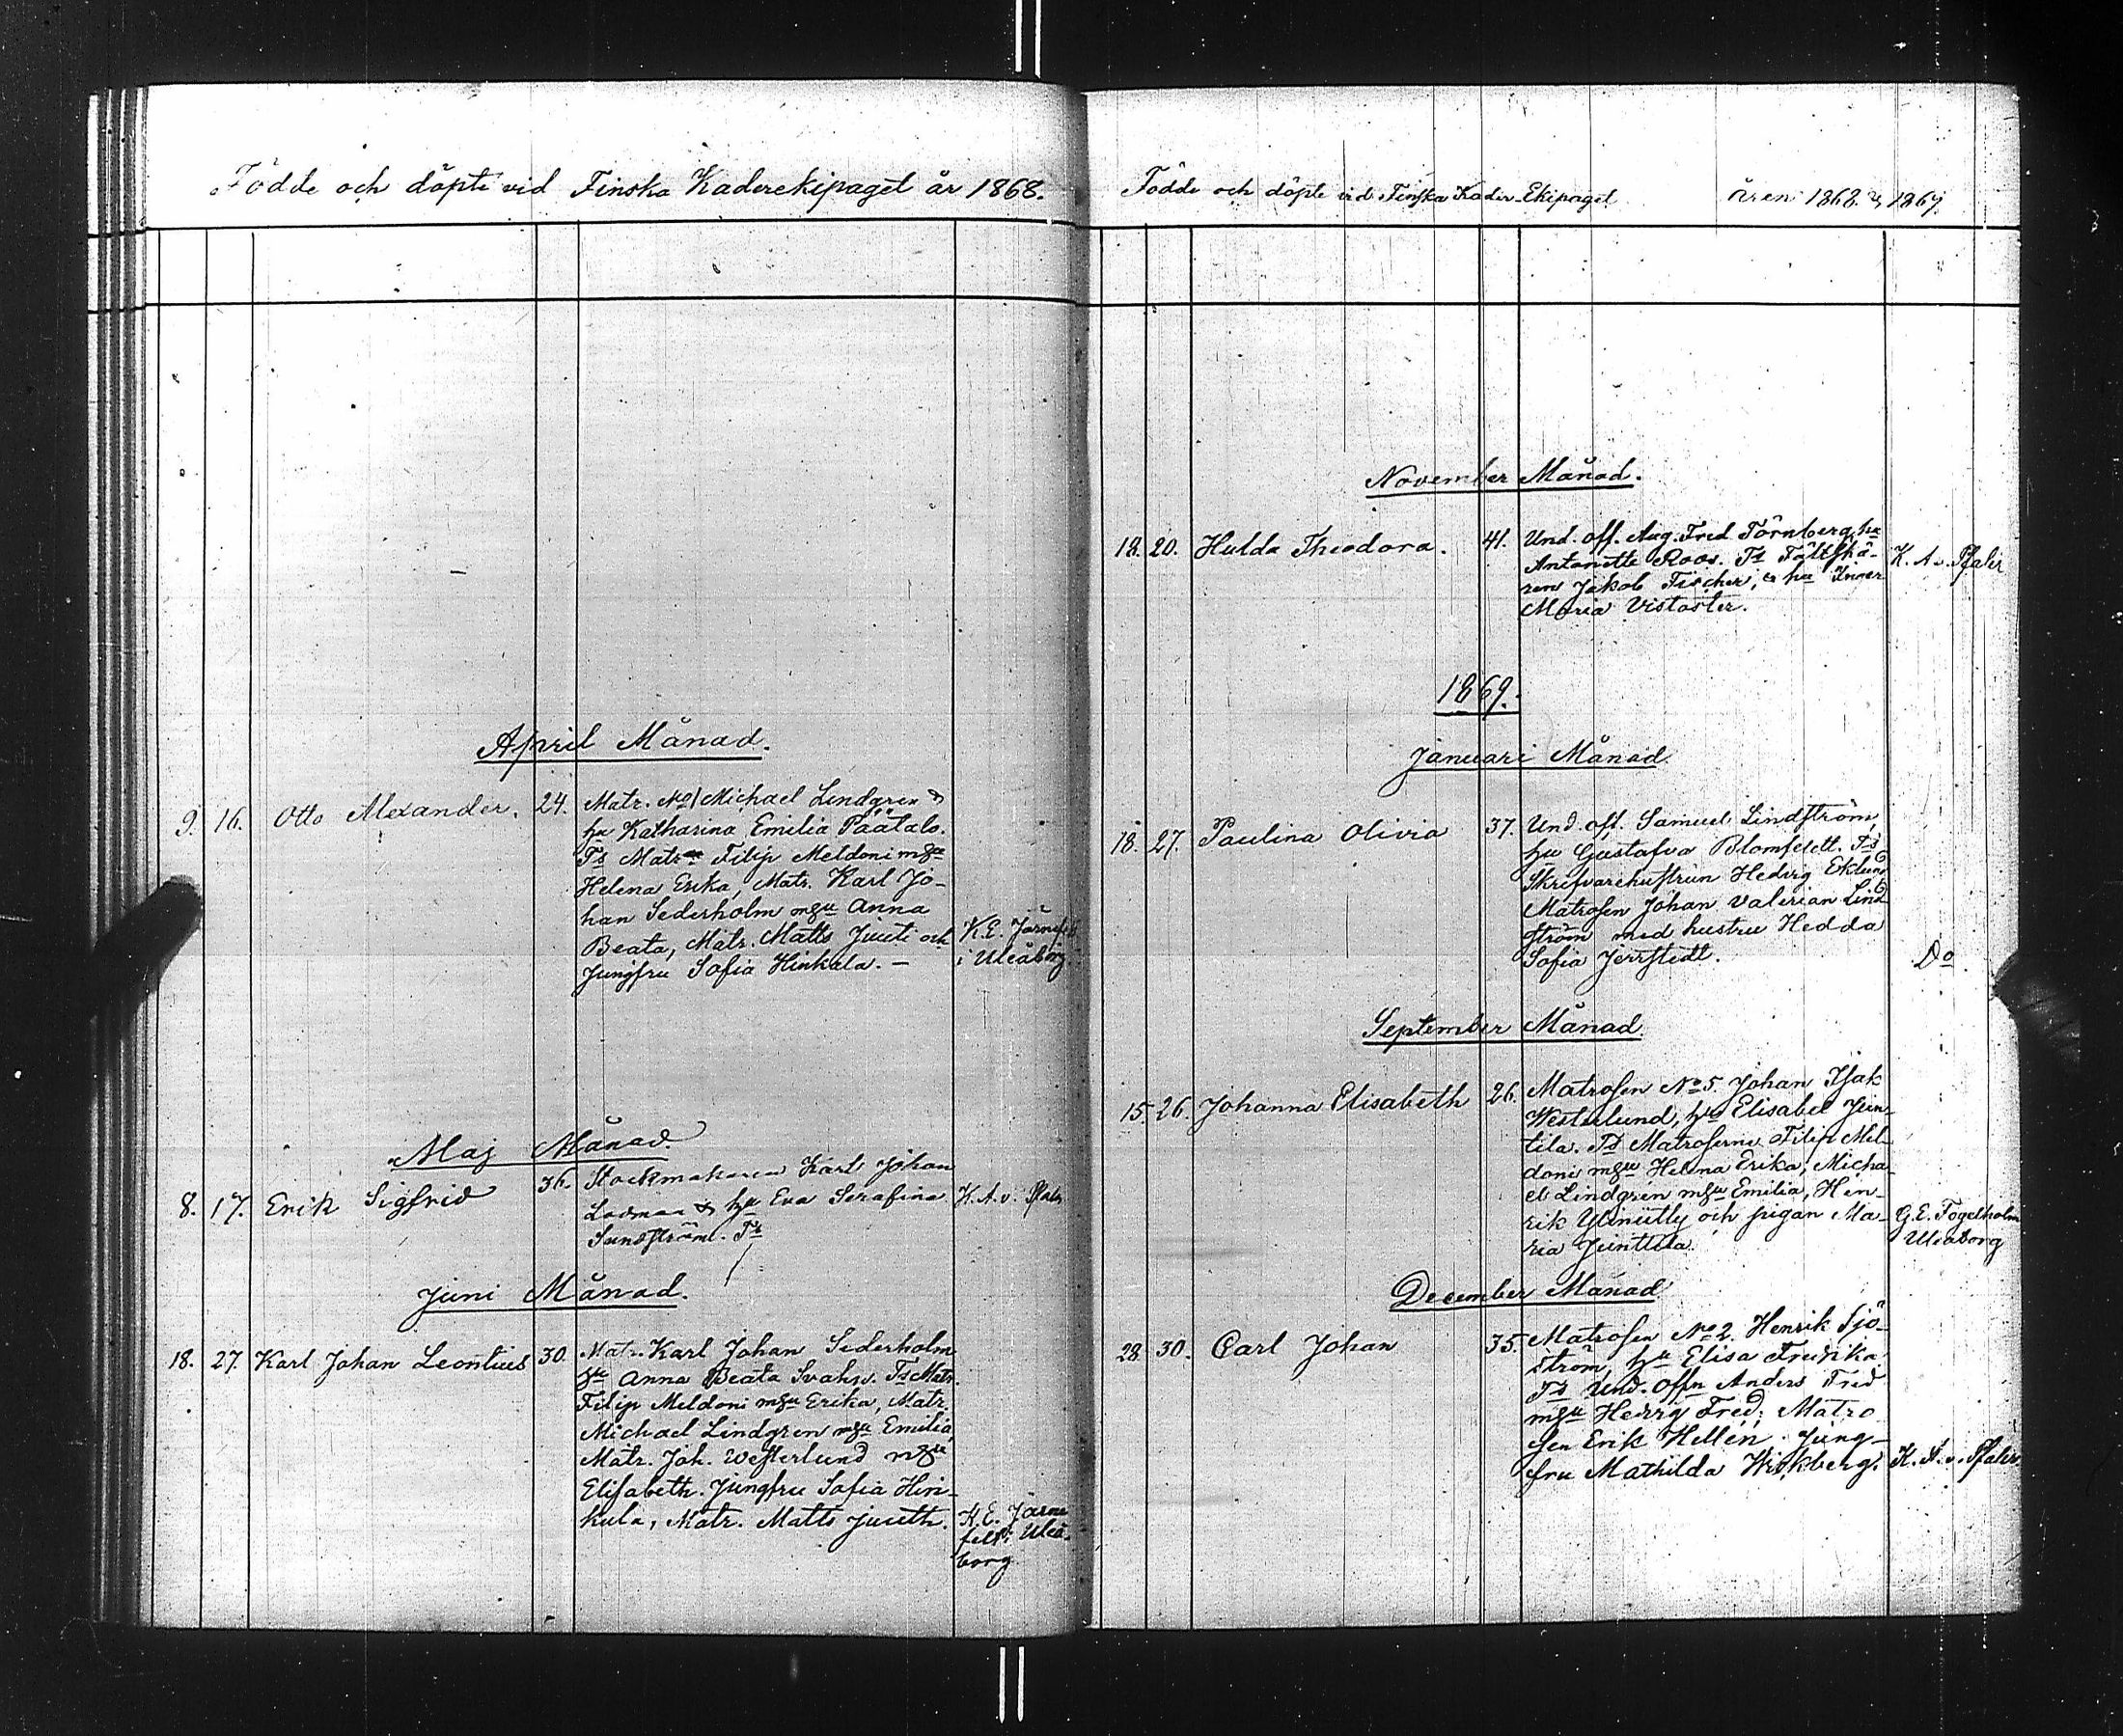 Födde och döpte vid Finska Kaderekipaget år 1868.
April Månad.
9. 16. Otto Alexander. 24. Matr. No 1 Michael Lindgren &
hu Katharina Emilia Päätalo.
Ts Matr. Filip Meldoni mhu
Helena Erika, Matr. Karl Jo-
han Sederholm mhu Anna
Beata, Matr. Matts Juuti och
Jungfru Sofia Hinkala. —
K. E. Järnefelt
i Uleåborg
Maj Månad.
8. 17. Erik Sigfrid 36. Stockmakaren Karl Johan
& hu Eva Serafina
Sundström. Ts
K. A. v. Pfaler
Juni Månad.
18. 27. Karl Johan Leontius 30. Matr. Karl Johan Sederholm
hu Anna Beata Svahn. Ts Matr.
Filip Meldoni mhu Erika, Matr.
Michael Lindgren mhu Emilia,
Matr. Joh. Westerlund mhu
Elisabeth. Jungfru Sofia Hin-
kula, Matr. Matts Juuth.
K. E. Järne
felt i Uleå-
borg
Födde och döpte vid Finska Kader-Ekipaget åren 1868 & 1869.
November Månad.
18. 20. Hulda Theodora. 41. Und. off. Aug. Fred Törnberg, hu
Antonette Roos. Ts Fältskä-
ren Jakob Fischer, & hu Inger
Maria Vistaster.
K. A. v. Pfaler
1869.
Januari Månad
18. 27. Paulina Olivia 37. Und. off. Samuel Lindström,
hu Gustafva Blomfeldt. Ts
Skrifvarehustrun Hedvig Eklund
Matrosen Johan Valerian Lind
ström med hustru Hedda
Sofia Jerrstedt.
Do
September Månad
15. 26. Johanna Elisabeth 26. Matrosen No 5. Johan Isak
Westerlund, hu Elisabet Jun-
tila. Ts Matroserne Filip Mel-
doni mhu Helena Erika, Micha-
el Lindgren mhu Emilia, Hen-
rik och pigan Ma-
ria Junttila.
G. E. Fogelholm
Uleaborg
December Månad
28. 30. Carl Johan 35. Matrosen No 2. Henrik Sjö-
ström, hu Elisa Fredrika
Ts Und. Offn Anders Frid
mhu Hedvig Fred; Matro
sen Erik Hellén. Jung-
fru Mathilda Wiskberg.
K. A. v. Pfaler